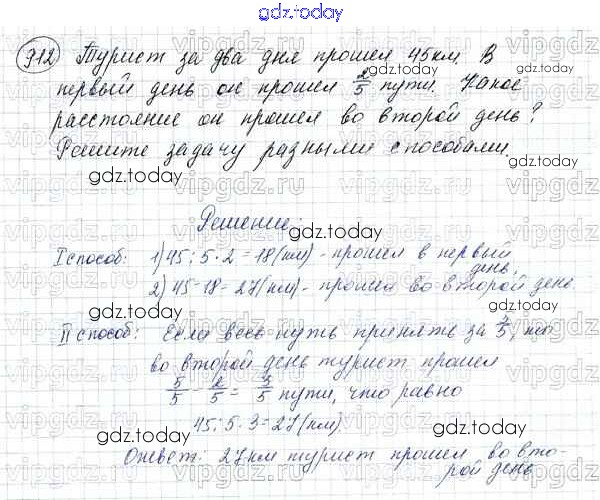 gdz.today
912 Турист за два дня прошел 45 км. В
первый день он прошел 2/5 пути. Какое
gdz.today
расстояние он прошел во второй день?
Решите задачу разными способами.
gdz.today
gdz.today
Решение:
I способ: 1) 45:5·2=18(км) - прошел в первый
день,
2) 45-18=27(км) - прошел во второй день.
gdz.today
II способ: Если весь путь принять за 5/5, то
во второй день турист прошел
5/5 - 2/5 = 3/5 пути, что равно
gdz.today
45:5·3=27(км).
gdz.today
Ответ: 27 км турист прошел во вто-
рой день
gdz.today